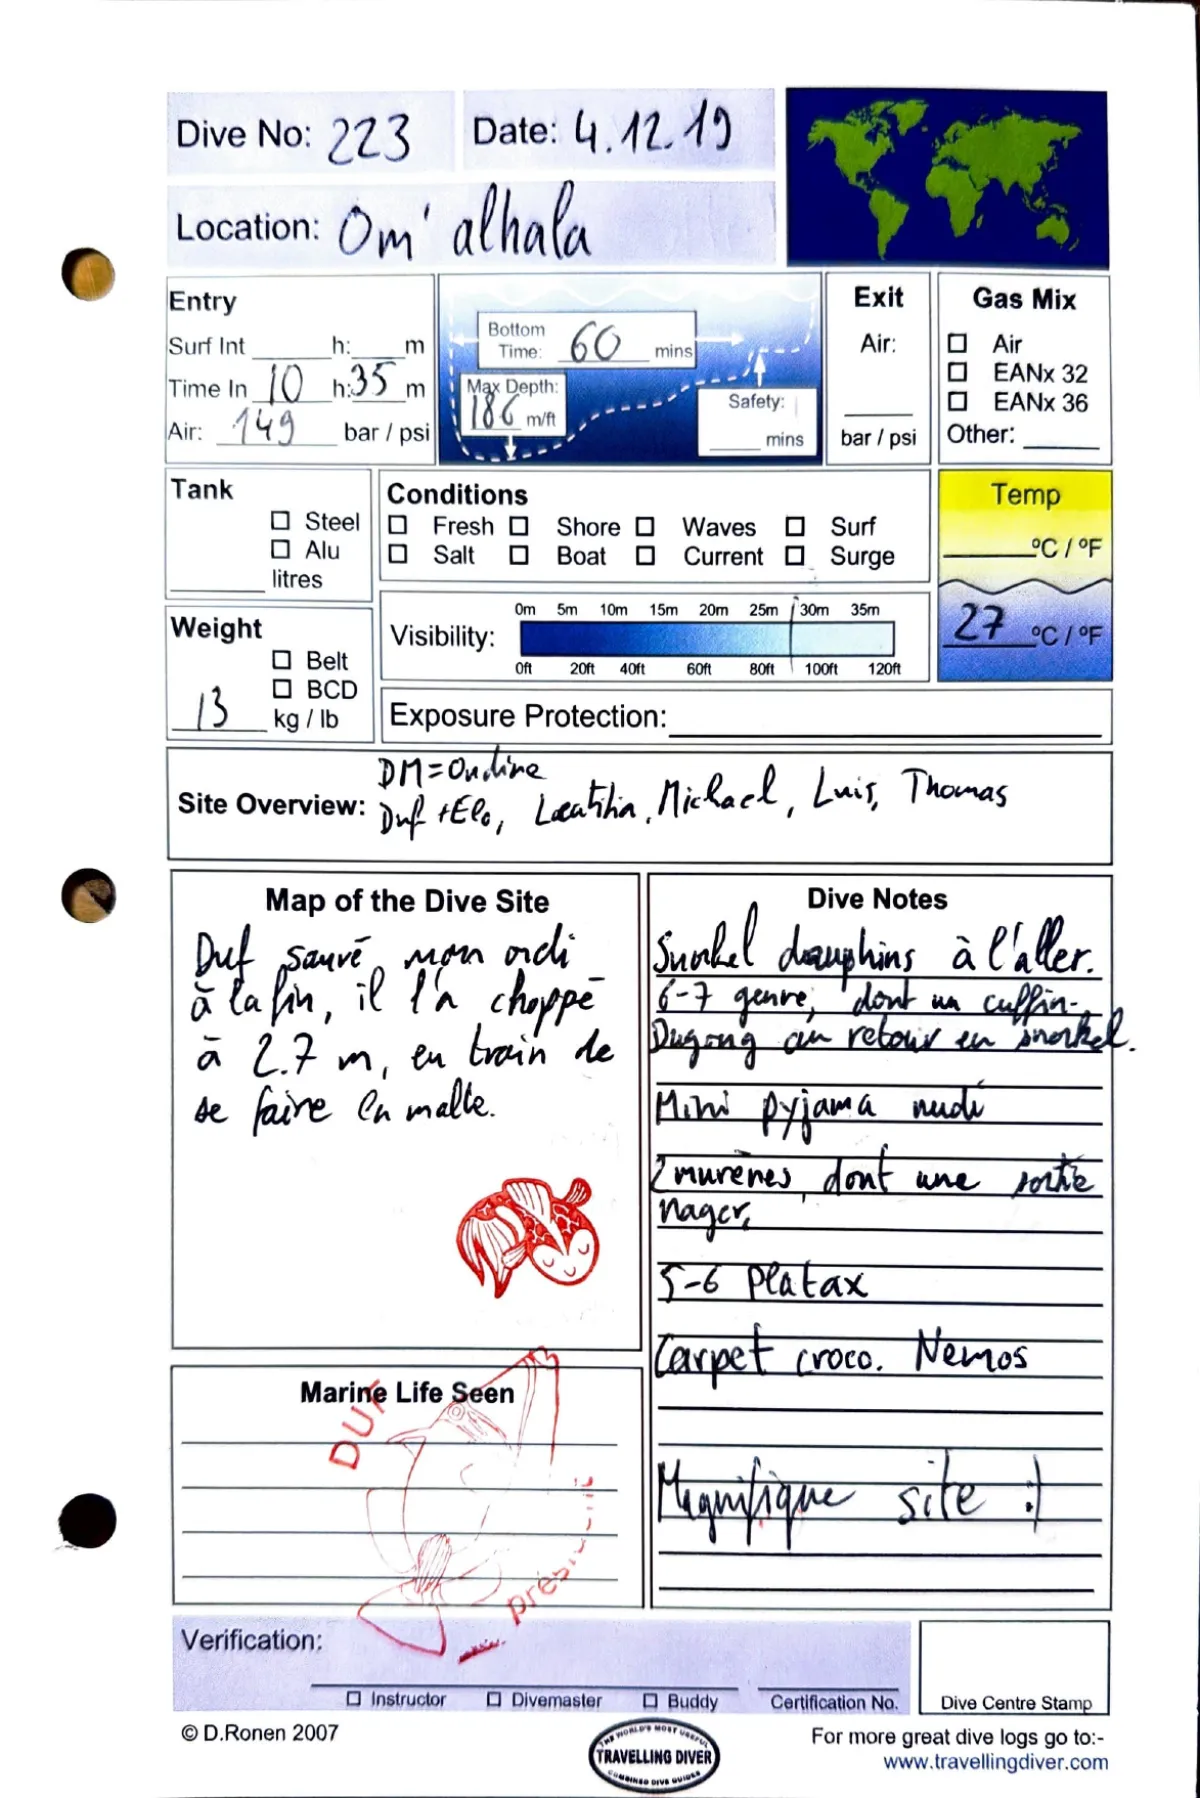 Dive No: 223 Date: 4.12.19
Location: Om' alhala
Entry
Surf Int h: m
Time In 10 h: 35 m
Air: 149 bar / psi
Bottom
Time: 60 mins
Max Depth:
186 m/ft
Safety:
mins
Exit
Air:
bar / psi
Gas Mix
Air
EANx 32
EANx 36
Other:
Tank
Steel
Alu
litres
Conditions
Fresh Shore Waves Surf
Salt Boat Current Surge
Temp
ºC / ºF
27 ºC / ºF
Weight
Belt
BCD
13 kg / lb
0m 5m 10m 15m 20m 25m 30m 35m
Visibility:
0ft 20ft 40ft 60ft 80ft 100ft 120ft
Exposure Protection:
DM=Ondine
Site Overview: Duf + Elo, Laetitia, Michael, Luis, Thomas
Map of the Dive Site
Duf sauvé mon ordi
à la fin, il l'a choppé
à 2.7 m, en train de
se faire la malle.
Dive Notes
Snorkel dauphins à l'aller.
6-7 genre, dont un
Dugong au retour en snorkel.
Mini pyjama nudi
2 murènes, dont une sortie
nager,
5-6 Platax
Carpet croco. Nemos
Magnifique site :)
Marine Life Seen
DUF
Verification:
Instructor Divemaster Buddy Certification No.
Dive Centre Stamp
© D.Ronen 2007
THE WORLD'S MOST USEFUL
TRAVELLING DIVER
COMBINED DIVE GUIDES
For more great dive logs go to:-
www.travellingdiver.com